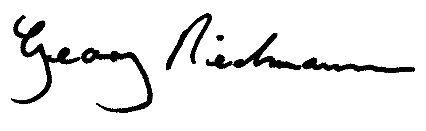 Georg Riedmann